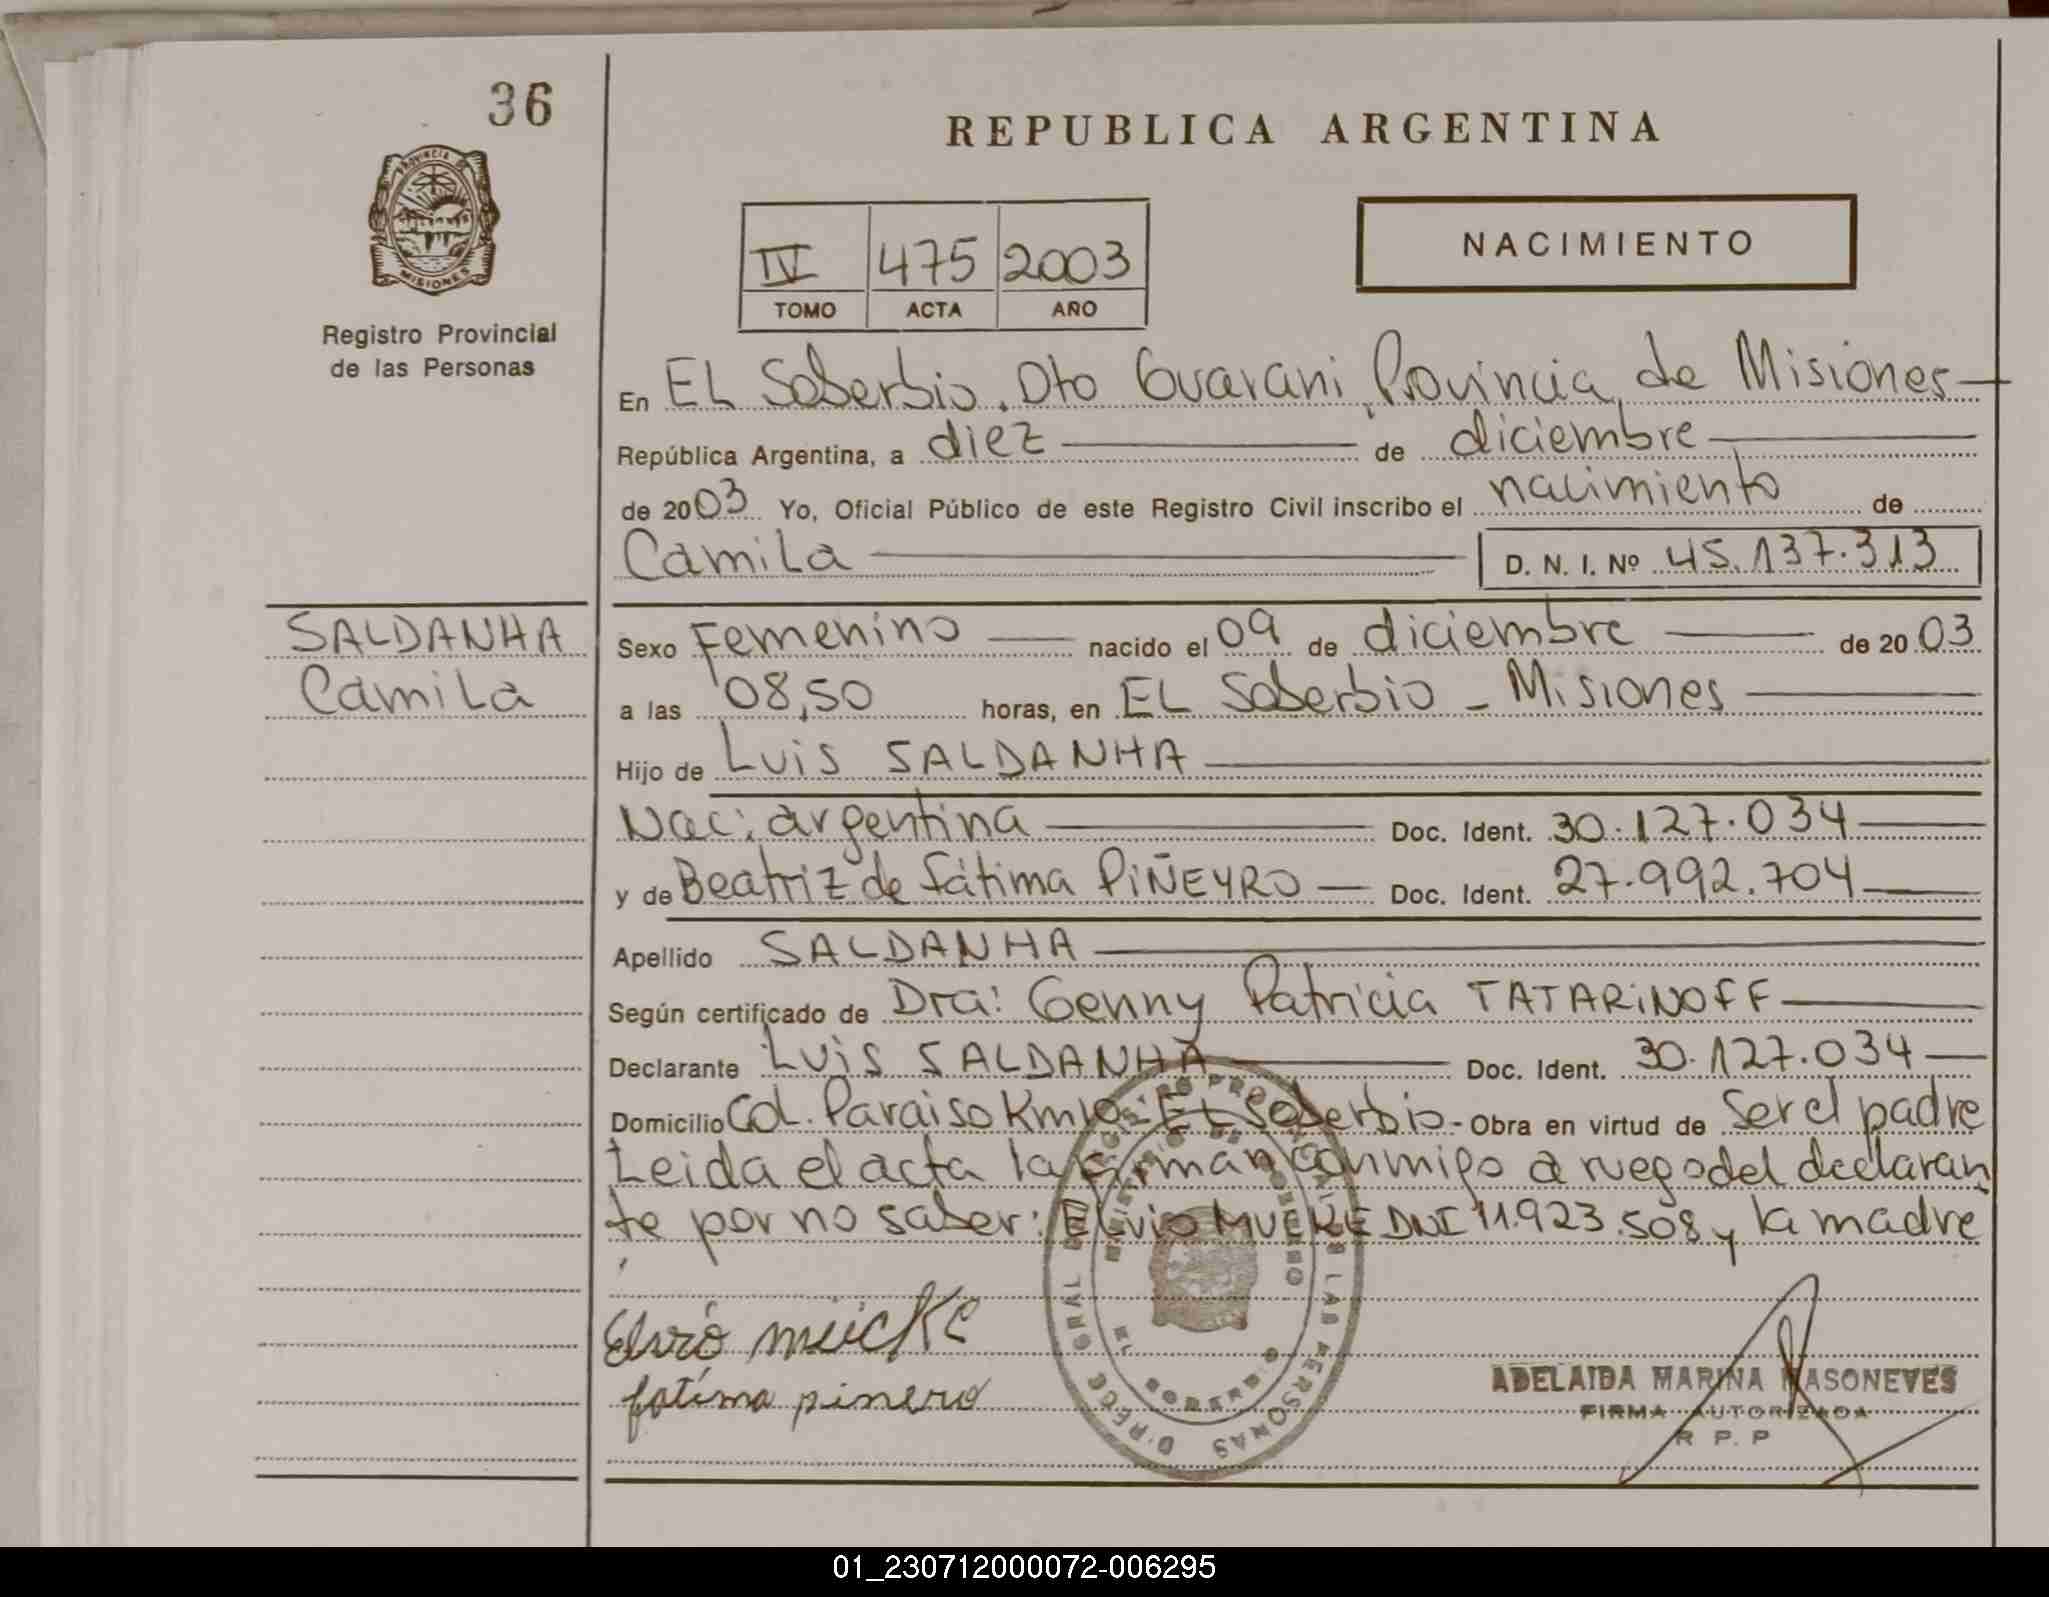 36
REPUBLICA ARGENTINA
PROVINCIA DE
MISIONES
Registro Provincial
de las Personas
IV 475 2003
TOMO ACTA AÑO
NACIMIENTO
En EL Soberbio, Dto Guarani, Provincia de Misiones
República Argentina, a diez de diciembre
de 2003 Yo, Oficial Público de este Registro Civil inscribo el nacimiento de
Camila D. N. I. Nº 45.137.313
SALDANHA
Camila
Sexo Femenino nacido el 09 de diciembre de 2003
a las 08,50 horas, en EL Soberbio - Misiones
Hijo de Luis SALDANHA
Nac: argentina Doc. Ident. 30.127.034
y de Beatriz de Fátima PiÑEYRO Doc. Ident. 27.992.704
Apellido SALDANHA
Según certificado de Dra: Genny Patricia TATARiNOFF
Declarante Luis SALDANHA Doc. Ident. 30.127.034
Domicilio Col. Paraiso Km10 - EL Soberbio - Obra en virtud de Ser el padre
Leida el acta la firman conmigo a ruego del declaran
te por no saber: Elvio MUEKE DNI 11.923.508 y la madre
Elvio müicke
fatima pinero
ADELAIDA MARINA MASONEVES
FIRMA AUTORIZADA
R. P. P
01_230712000072-006295